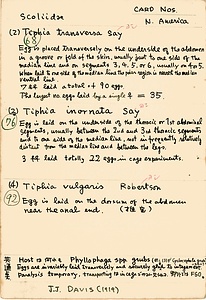 Scoliidæ
CARD NOS.
N. America
(2) Tiphia transversa Say
68
Egg is placed transversely on the underside of the abdomen
in a groove or fold of the skin, usually just to one side of the
median line and on segments 3, 4, 5, or 6, usually on 4 or 5.
When laid to one side of the median line the
ventral line.
7 ♀♀ laid a total of 90 eggs.
The largest no. eggs laid by a single ♀ = 35.
(3) Tiphia inornata Say
76
Egg is laid on the underside of the thorax or 1st abdominal
segments, usually between the 2nd and 3rd thoracic segments
and to one side of the median line, not infrequently relatively
distant from the median line and between the legs.
3 ♀♀ laid totally 22 eggs in cage experiments.
(4) Tiphia vulgaris Robertson
92
Egg is laid on the dorsum of the abdomen
near the anal end.
Host is Phyllophaga spp. grubs
Eggs are invariably laid transversely and securely glued to integument.
J.J. DAVIS (1919)